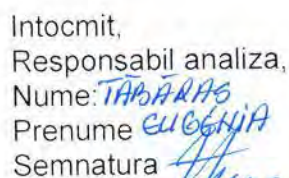 Intocmit,
Responsabil analiza,
Nume: TĂBĂRAS
Prenume EUGENIA
Semnatura